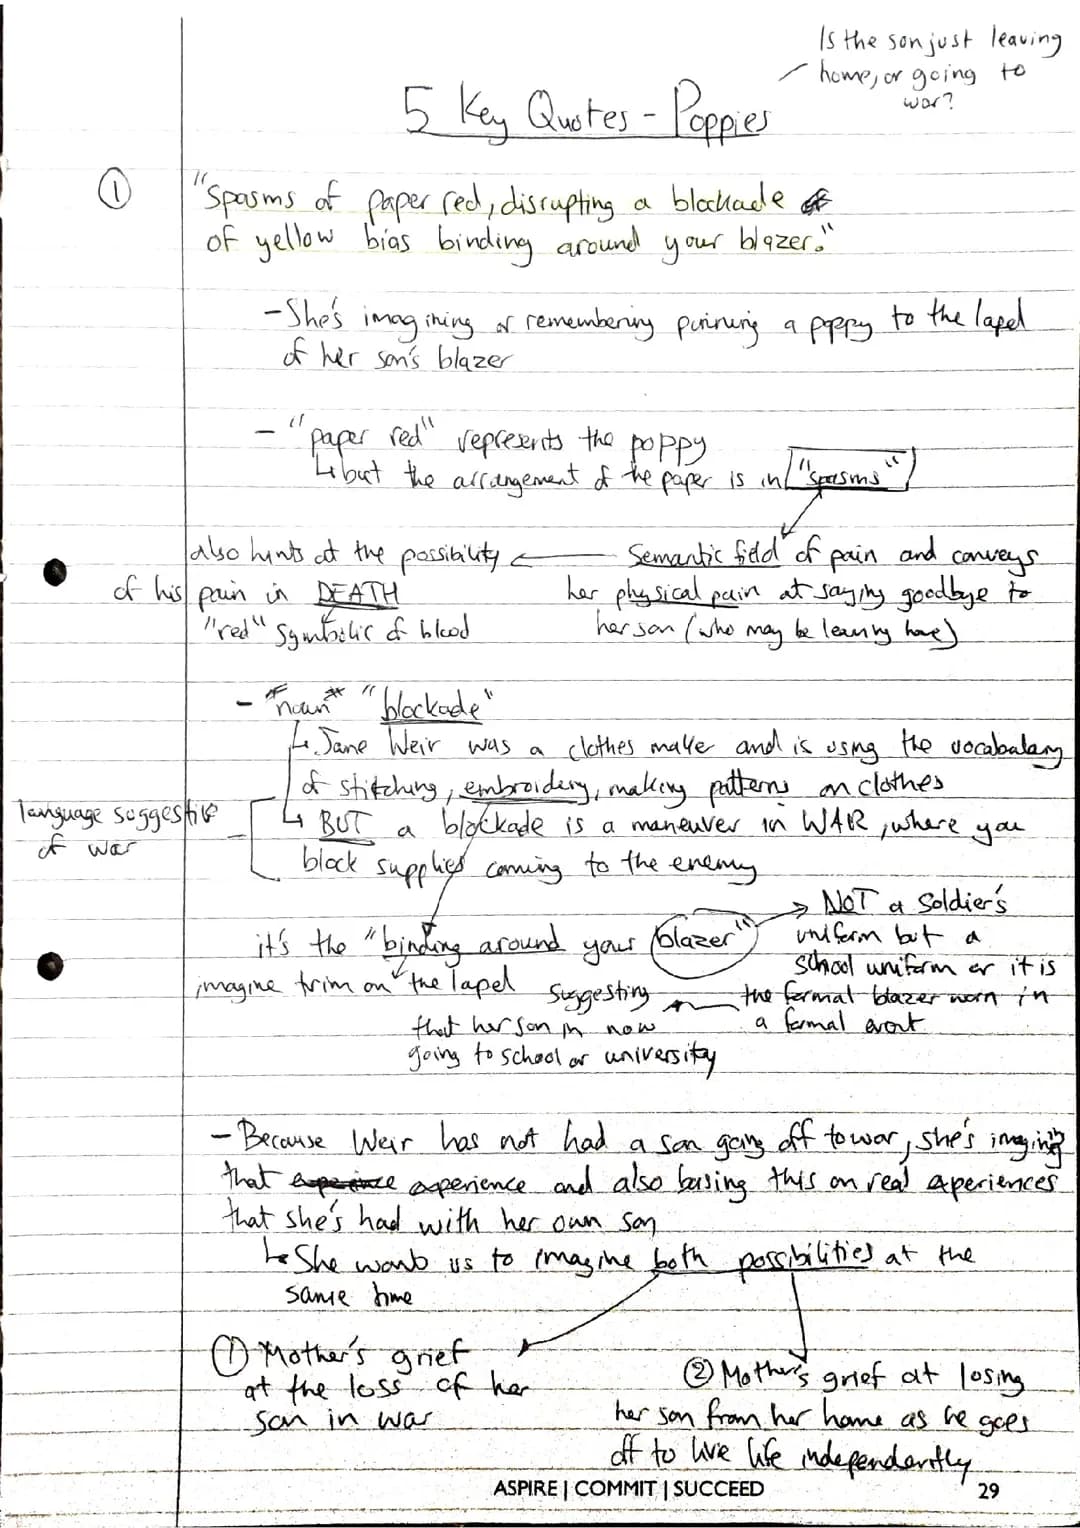 Is the son just leaving
home, or going to
war?
5 Key Quotes - Poppies
①
"Spasms of paper red, disrupting a blockade
of yellow bias binding around your blazer."
- She's imagining or remembering pinning a poppy to the lapel
of her son's blazer
- "paper red" represents the poppy
↳ but the arrangement of the paper is in "spasms"
Semantic field of pain and conveys
her physical pain at saying goodbye to
her son (who may be leaving home)
also hints at the possibility
of his pain in DEATH
"red" Symbolic of blood
- *noun* "blockade"
↳ Jane Weir was a clothes maker and is using the vocabulary
of stitching, embroidery, making patterns on clothes
↳ BUT a blockade is a maneuver in WAR, where you
block supplies coming to the enemy
language suggestive
of war
it's the "binding around your blazer"
imagine trim on the lapel
NOT a soldier's
uniform but a
school uniform or it is
the formal blazer worn in
a formal event
Suggesting
that her son in now
going to school or university
- Because Weir has not had a son going off to war, she's imagining
that experience and also basing this on real experiences
that she's had with her own son
↳ She wants us to imagine both possibilities at the
same time
① Mother's grief
at the loss of her
son in war
② Mother's grief at losing
her son from her home as he goes
off to live life independently
ASPIRE | COMMIT | SUCCEED
29